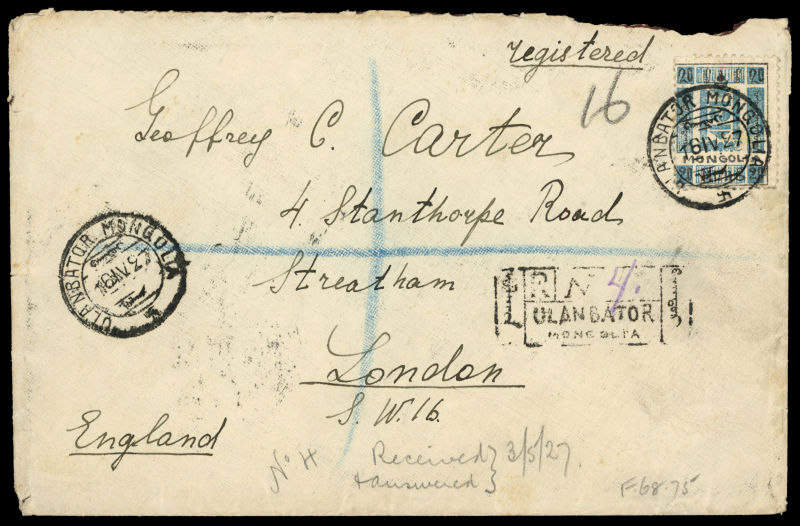 registered
16
20 20
MONGOLIA
20 20
ULANBATOR MONGOLIA
16 IV 27
Geoffrey C. Carter
4. Stanthorpe Road
Streatham
London
S.W.16.
England
ULANBATOR MONGOLIA
16 IV 27
R No 4.
ULANBATOR
MONGOLIA
No 4
Received } 3/5/27.
+ answered }
F.68.75